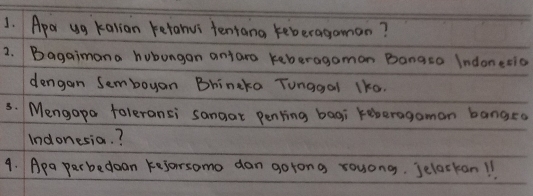 1. Apa yg kalian ketahui tentang keberagaman ?
2. Bagaimana hubungan antara keberagaman Bangsa Indonesia
dengan Semboyan Bhineka Tunggal Ika.
3. Mengapa toleransi sangat penting bagi keberagaman bangsa
Indonesia.?
4. Apa perbedaan kejarsama dan gotong royong. jelaskan !!